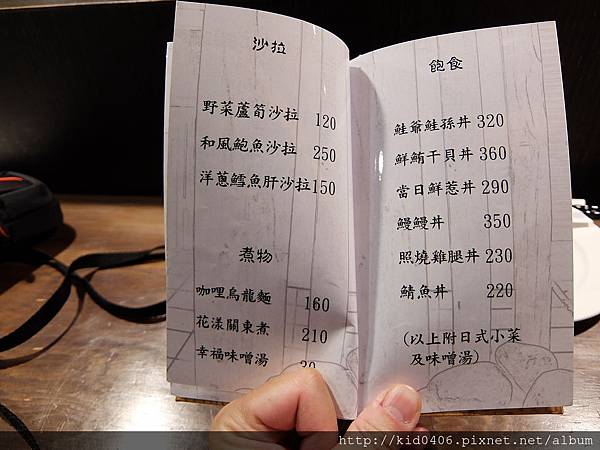 沙拉
野菜蘆筍沙拉 120
和風鮑魚沙拉 250
洋蔥鱈魚肝沙拉 150
煮物
咖哩烏龍麵 160
花漾關東煮 210
幸福味噌湯 30
飽食
鮭爺鮭孫丼 320
鮮鮪干貝丼 360
當日鮮惹丼 290
鰻鰻丼 350
照燒雞腿丼 230
鯖魚丼 220
(以上附日式小菜
及味噌湯)
http://kid0406.pixnet.net/album